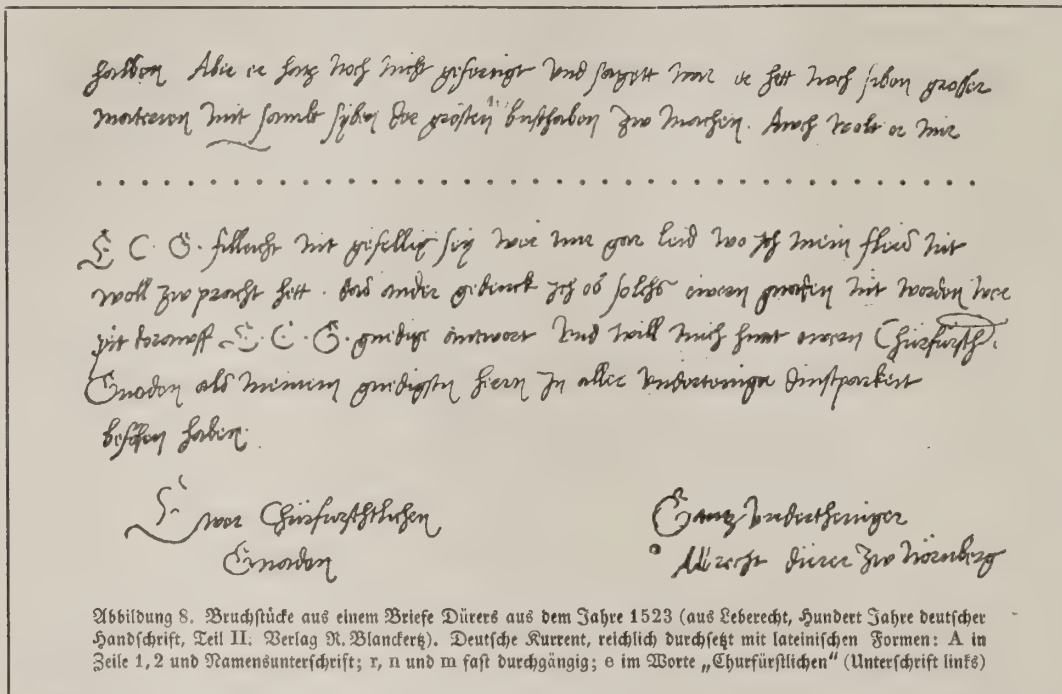 halben Aber er hatz noch nicht geferrigt und sagett mir er hett noch siben grosser
materien mit sambt syben der grösten busthaben zw machen. Auch wolt er mir
E C G. filleicht nit gefellig sey wer mir gar leid wo Jch mein fleis nit
woll zw pracht hett. das ander gedenck Jch ob solchs ewern gnaden nit worden wer
pit dorauff E. C. G. gnedige antwort und will mich himit ewern Churfürsth.
Gnaden als meinem gnedigsten hern Jn aller underteniger dinstparkeit
befolhen haben.
Ewer Churfürsthtlichen
Gnaden
Gantz undertheniger
Albrecht Dürer zw Nörnberg
Abbildung 8. Bruchstücke aus einem Briefe Dürers aus dem Jahre 1523 (aus Leberecht, Hundert Jahre deutscher
Handschrift, Teil II. Verlag R. Blanckertz). Deutsche Kurrent, reichlich durchsetzt mit lateinischen Formen: A in
Zeile 1, 2 und Namensunterschrift; r, n und m fast durchgängig; e im Worte „Churfürstlichen“ (Unterschrift links)